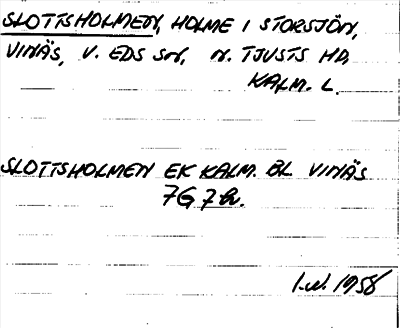 SLOTTSHOLMEN, HOLME I STORSJÖN,
VINÄS, V. EDS SN, N. TJUSTS HD,
KALM. L.
SLOTTSHOLMEN EK KALM. BL VINÄS
7G 7h.
I.W. 1958